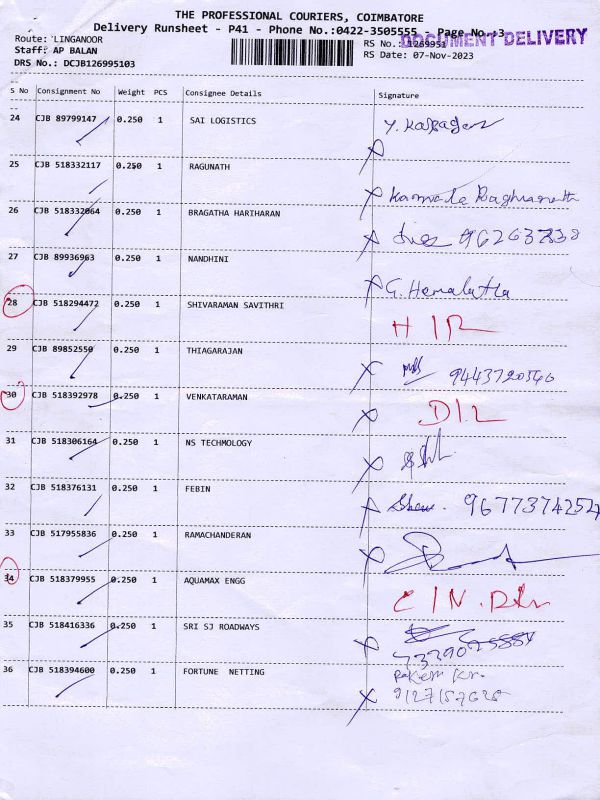 THE PROFESSIONAL COURIERS, COIMBATORE
Delivery Runsheet - P41 - Phone No.:0422-3505555 Page No.:3
DOCUMENT DELIVERY
Route: LINGANOOR
RS No.: 1269951
Staff: AP BALAN
RS Date: 07-Nov-2023
DRS No.: DCJB126995103
S No Consignment No Weight PCS Consignee Details Signature
24 CJB 89799147 0.250 1 SAI LOGISTICS
25 CJB 518332117 0.250 1 RAGUNATH
Kamala Raghunath
26 CJB 518332064 0.250 1 BRAGATHA HARIHARAN
27 CJB 89936963 0.250 1 NANDHINI
G. Hemalatha
28 CJB 518294472 0.250 1 SHIVARAMAN SAVITHRI
29 CJB 89852550 0.250 1 THIAGARAJAN
9443720540
30 CJB 518392978 0.250 1 VENKATARAMAN
D/L
31 CJB 518306164 0.250 1 NS TECHMOLOGY
32 CJB 518376131 0.250 1 FEBIN
33 CJB 517955836 0.250 1 RAMACHANDERAN
34 CJB 518379955 0.250 1 AQUAMAX ENGG
35 CJB 518416336 0.250 1 SRI SJ ROADWAYS
36 CJB 518394600 0.250 1 FORTUNE NETTING